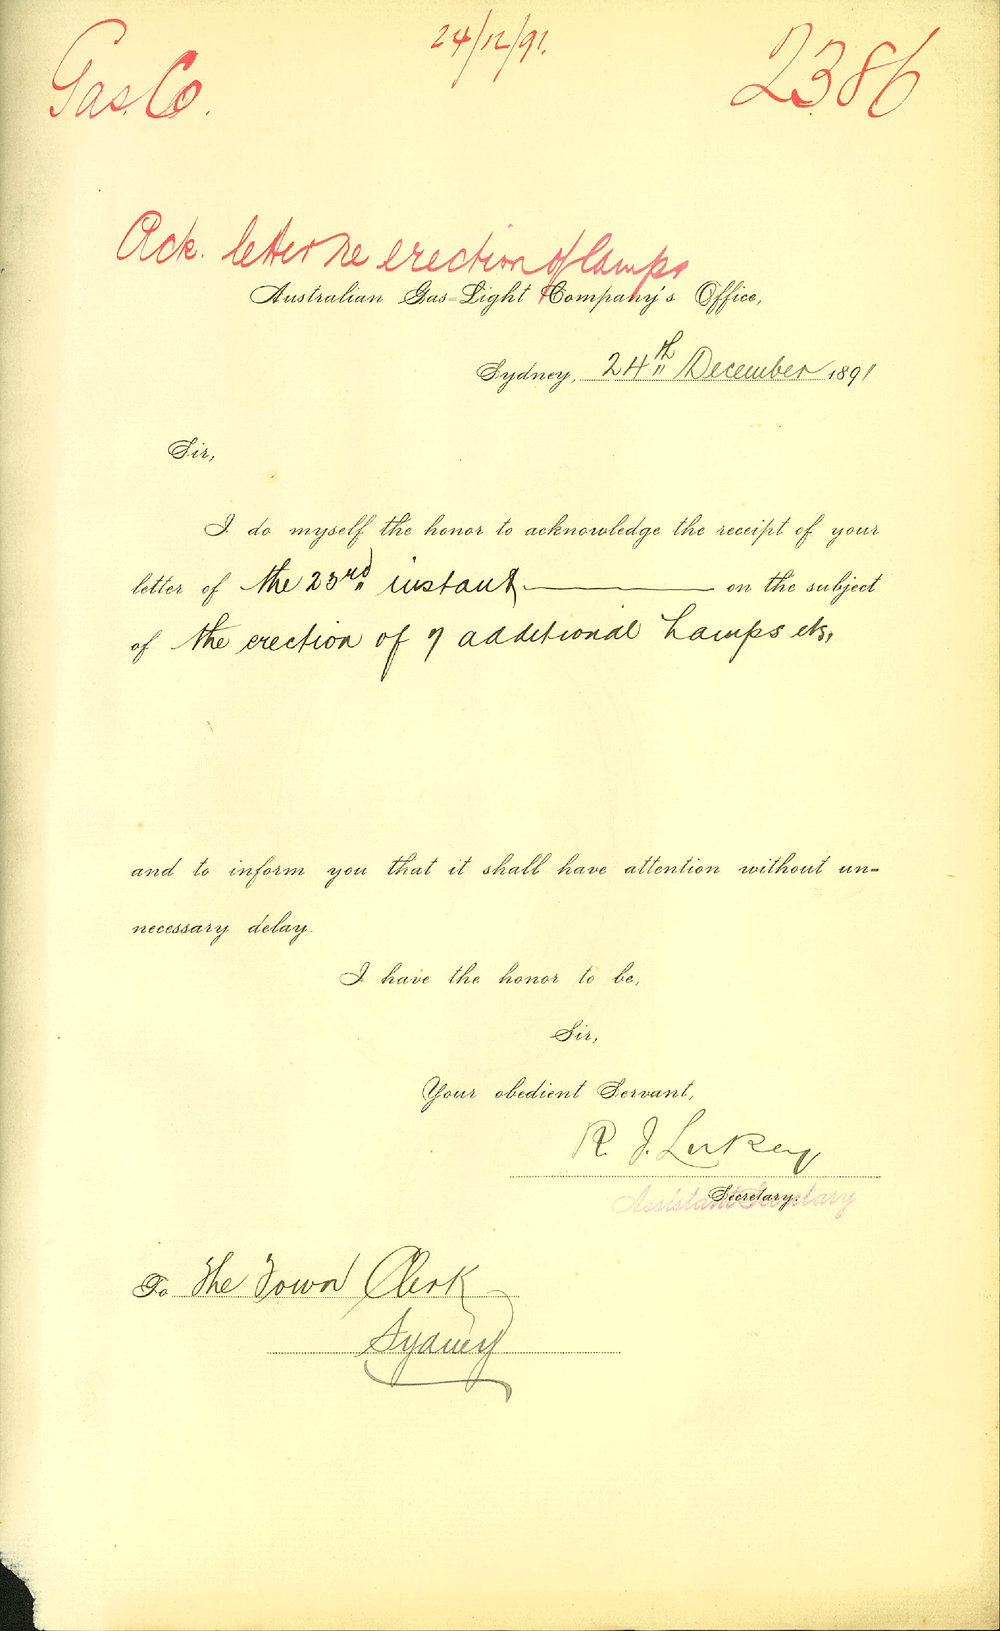 Gas. Co.
24/12/91.
2386
Ack. letter re erection of lamps
Australian Gas-Light Company's Office,
Sydney, 24th December 1891
Sir,
I do myself the honor to acknowledge the receipt of your
letter of the 23rd instant on the subject
of the erection of 7 additional Lamps etc,
and to inform you that it shall have attention without un-
necessary delay.
I have the honor to be,
Sir,
Your obedient Servant,
R. J. Lukey
Secretary.
Assistant Secretary
To The Town Clerk
Sydney